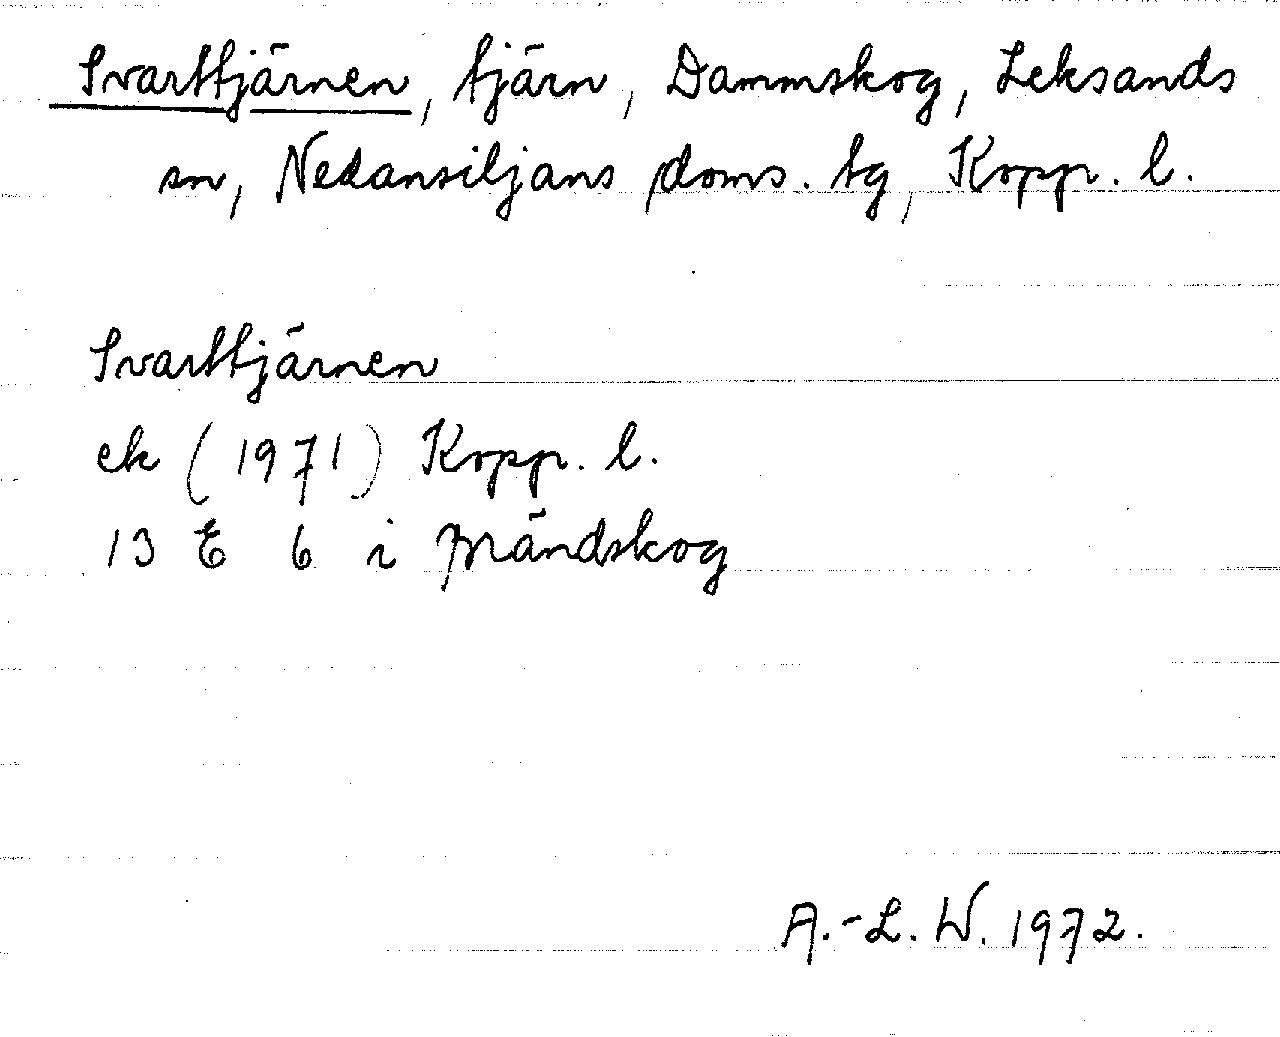 Svarttjärnen, tjärn, Dammskog, Leksands
sn, Nedansiljans doms. tg, Kopp. l.
Svarttjärnen
ek (1971) Kopp. l.
13 E 6 i Mändskog
A.-L. W. 1972.